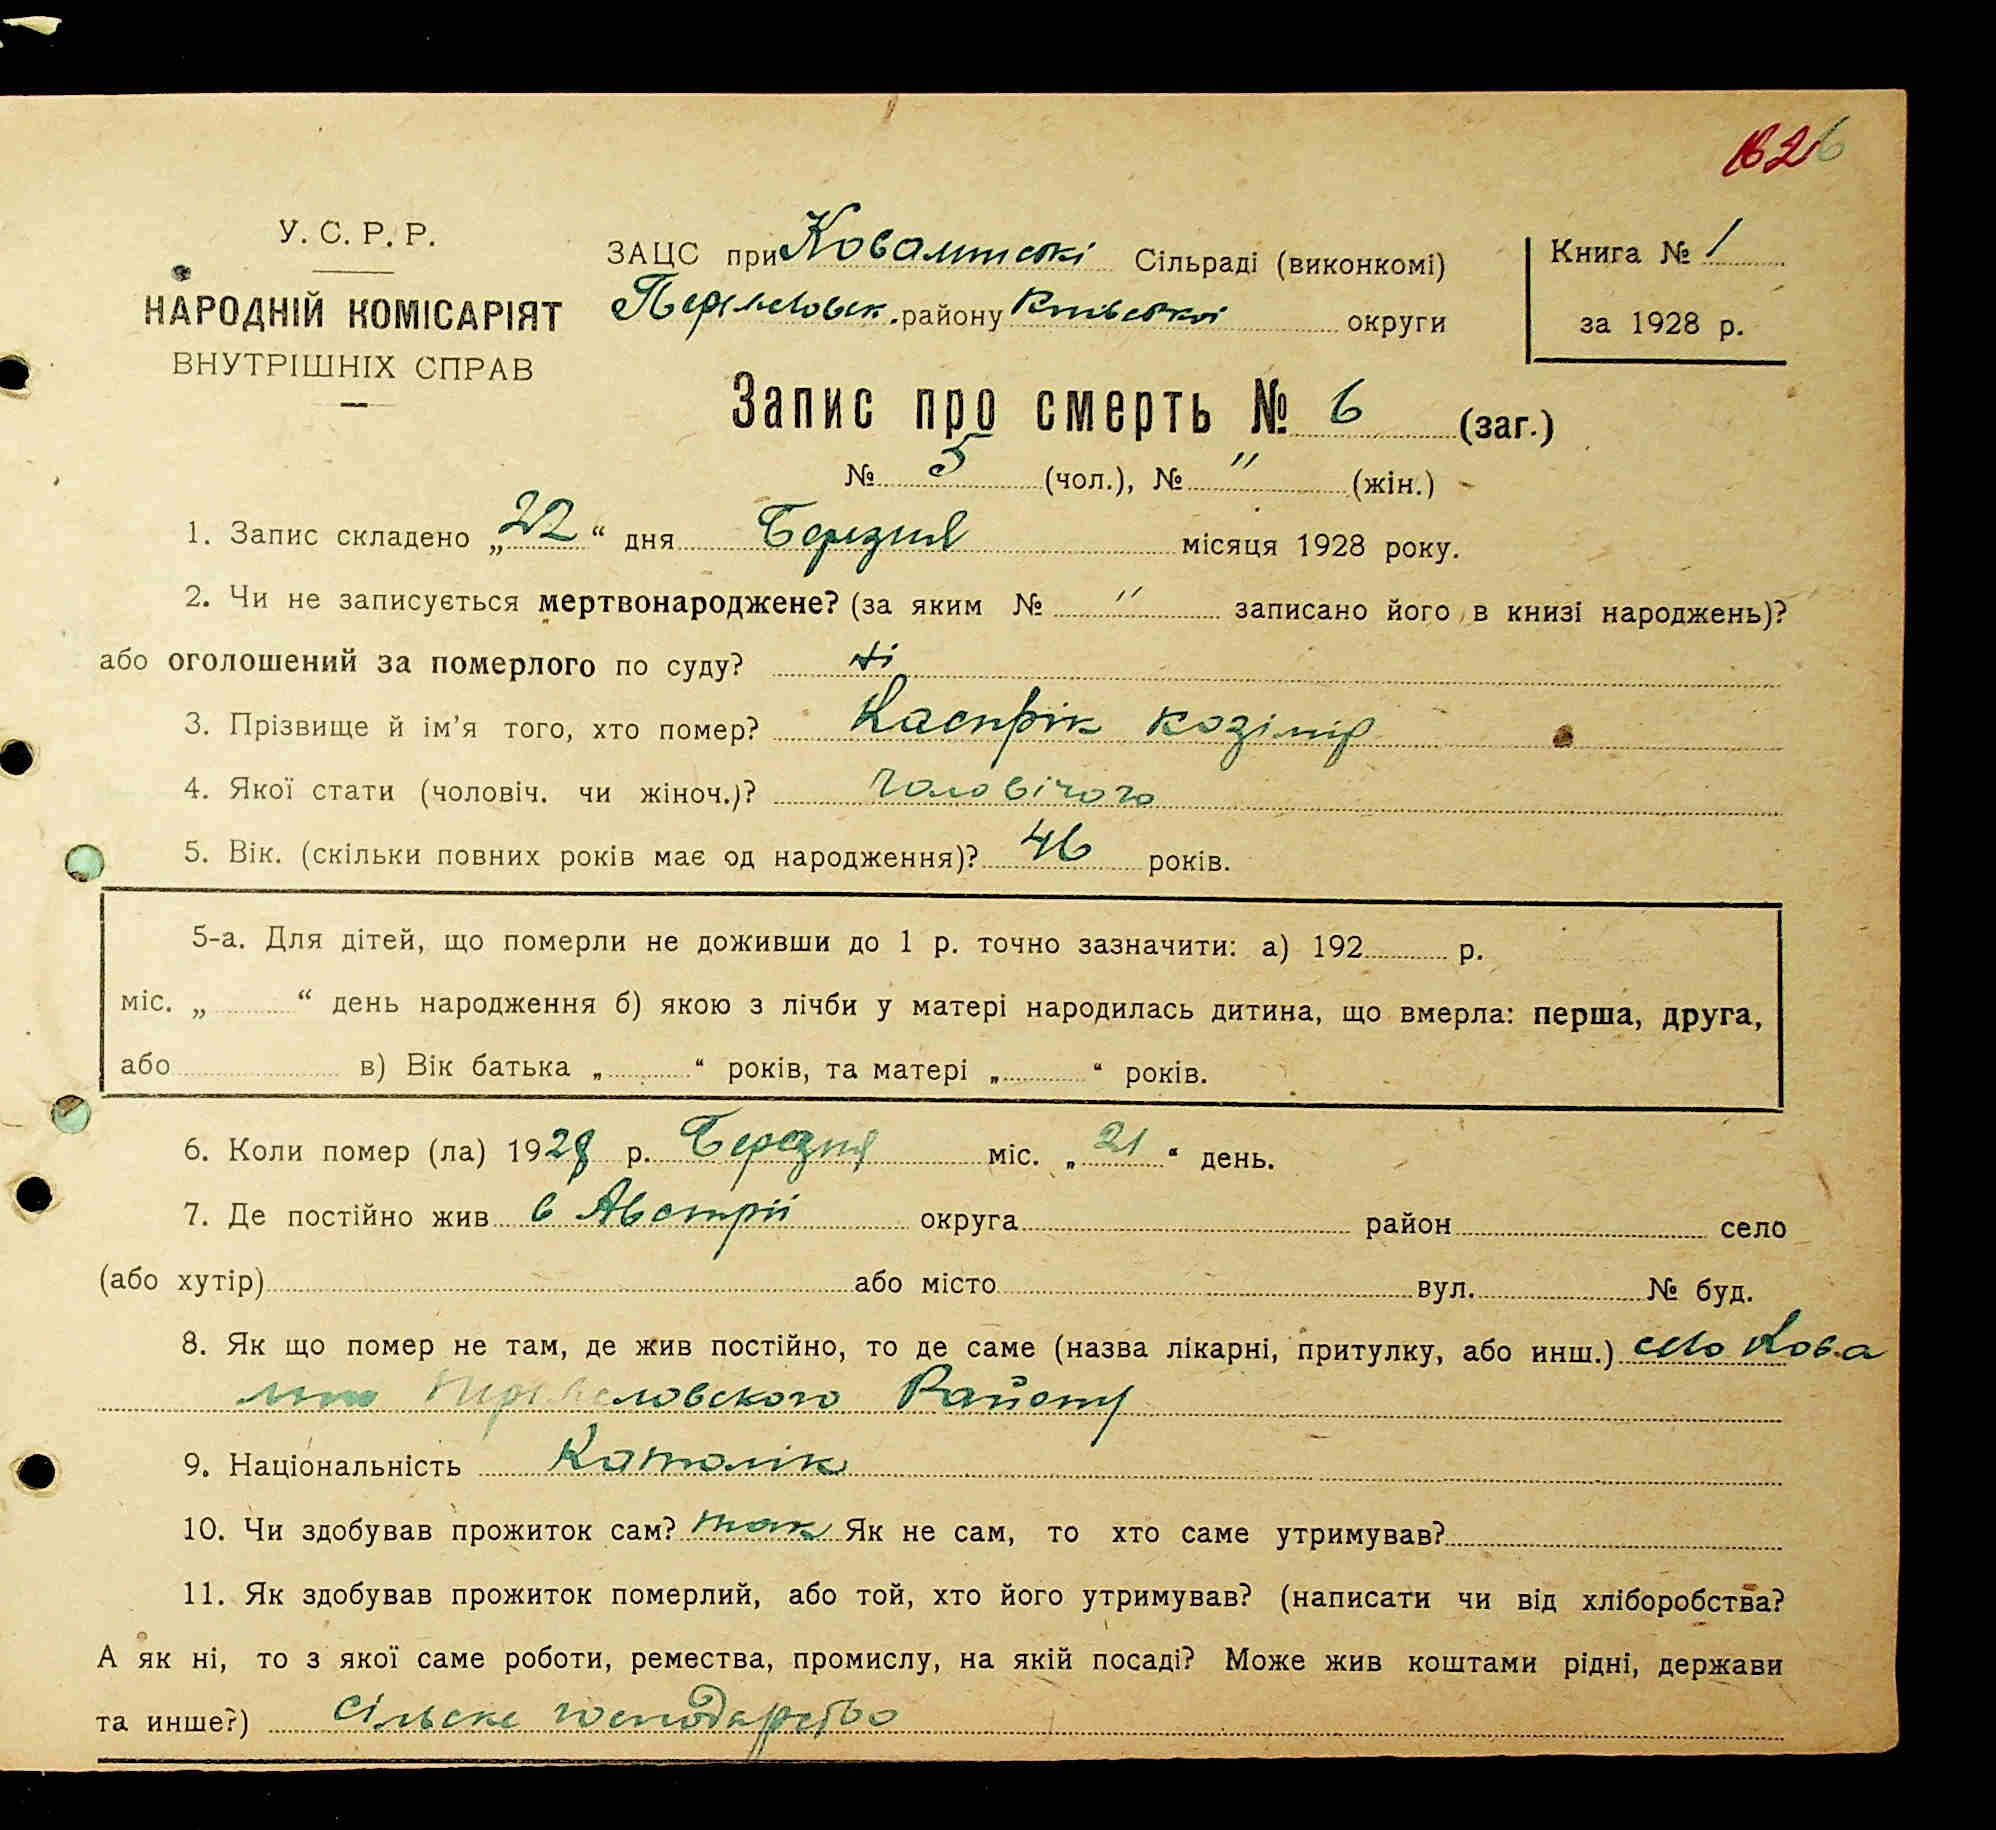 1626
У. С. Р. Р.
НАРОДНІЙ КОМІСАРІЯТ
ВНУТРІШНІХ СПРАВ
ЗАЦС при Ковалинські Сільраді (виконкомі)
району Київської округи
Книга № 1
за 1928 р.
Запис про смерть № 6 (заг.)
№ 5 (чол.), № " (жін.)
1. Запис складено „22“ дня Березня місяця 1928 року.
2. Чи не записується мертвонароджене? (за яким № " записано його в книзі народжень)?
або оголошений за померлого по суду? ні
3. Прізвище й ім’я того, хто помер? Каспрік Козімір
4. Якої стати (чоловіч. чи жіноч.)? Чоловічого
5. Вік. (скільки повних років має од народження)? 46 років.
5-а. Для дітей, що померли не доживши до 1 р. точно зазначити: а) 192 р.
міс. „ “ день народження б) якою з лічби у матері народилась дитина, що вмерла: перша, друга,
або в) Вік батька „ “ років, та матері „ “ років.
6. Коли помер (ла) 1928 р. Березня міс. „21“ день.
7. Де постійно жив в Австрії округа район село
(або хутір) або місто вул. № буд.
8. Як що помер не там, де жив постійно, то де саме (назва лікарні, притулку, або инш.) село Кова
ловского Району
9. Національність Католік
10. Чи здобував прожиток сам? так Як не сам, то хто саме утримував?
11. Як здобував прожиток померлий, або той, хто його утримував? (написати чи від хліборобства?
А як ні, то з якої саме роботи, ремества, промислу, на якій посаді? Може жив коштами рідні, держави
та инше?) Сільське господарство